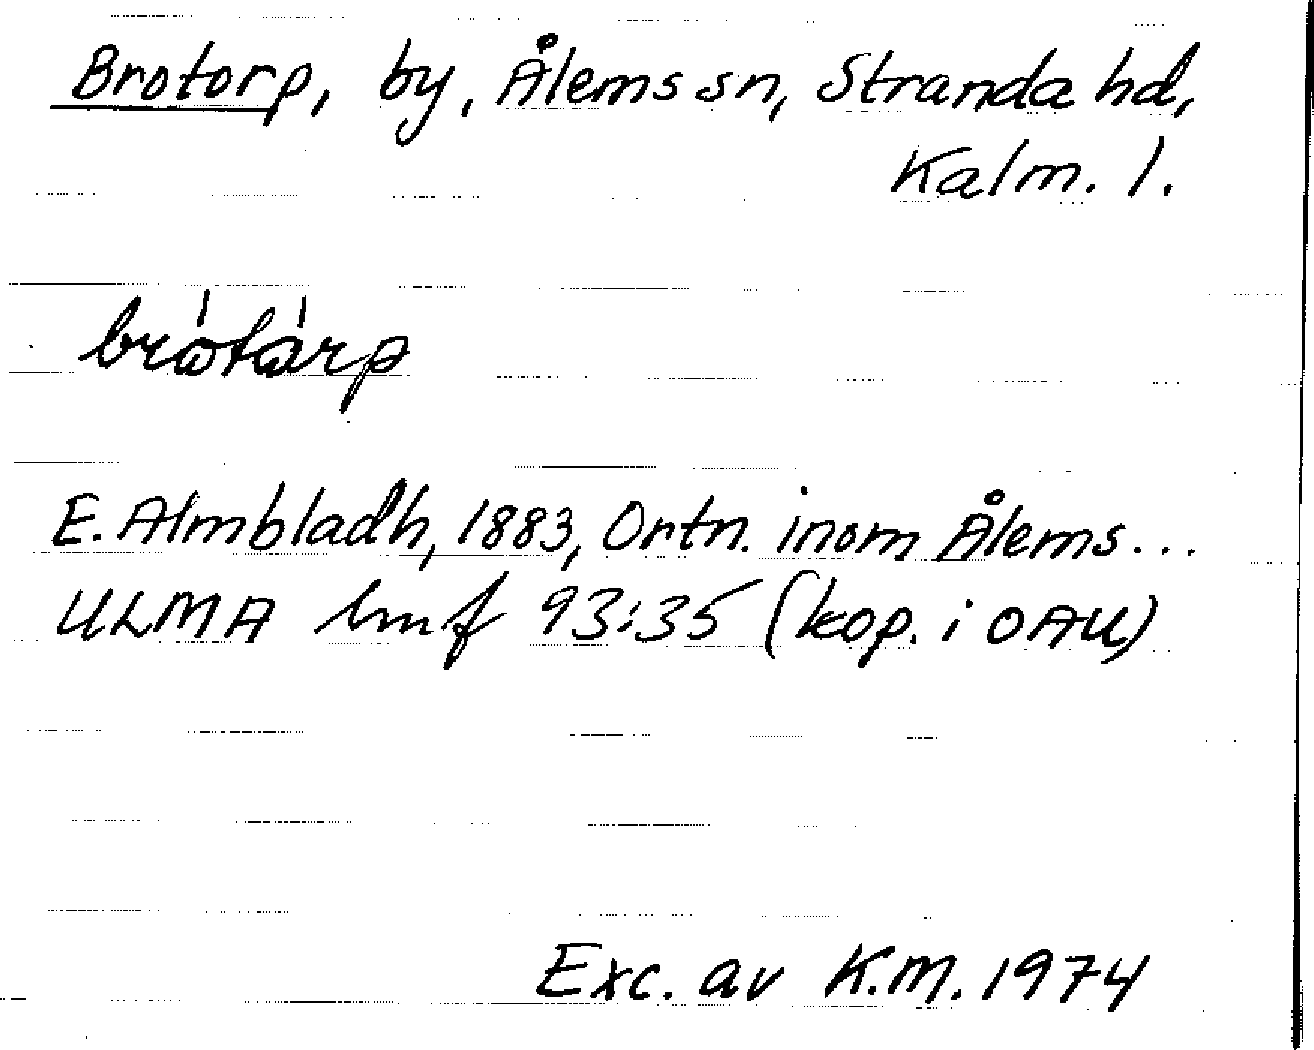 Brotorp, by, Ålems sn, Stranda hd,
Kalm. l.
brótárp
E. Almbladh, 1883, Ortn. inom Ålems...
ULMA hmf 93:35 (kop. i OAU)
Exc. av K.M. 1974